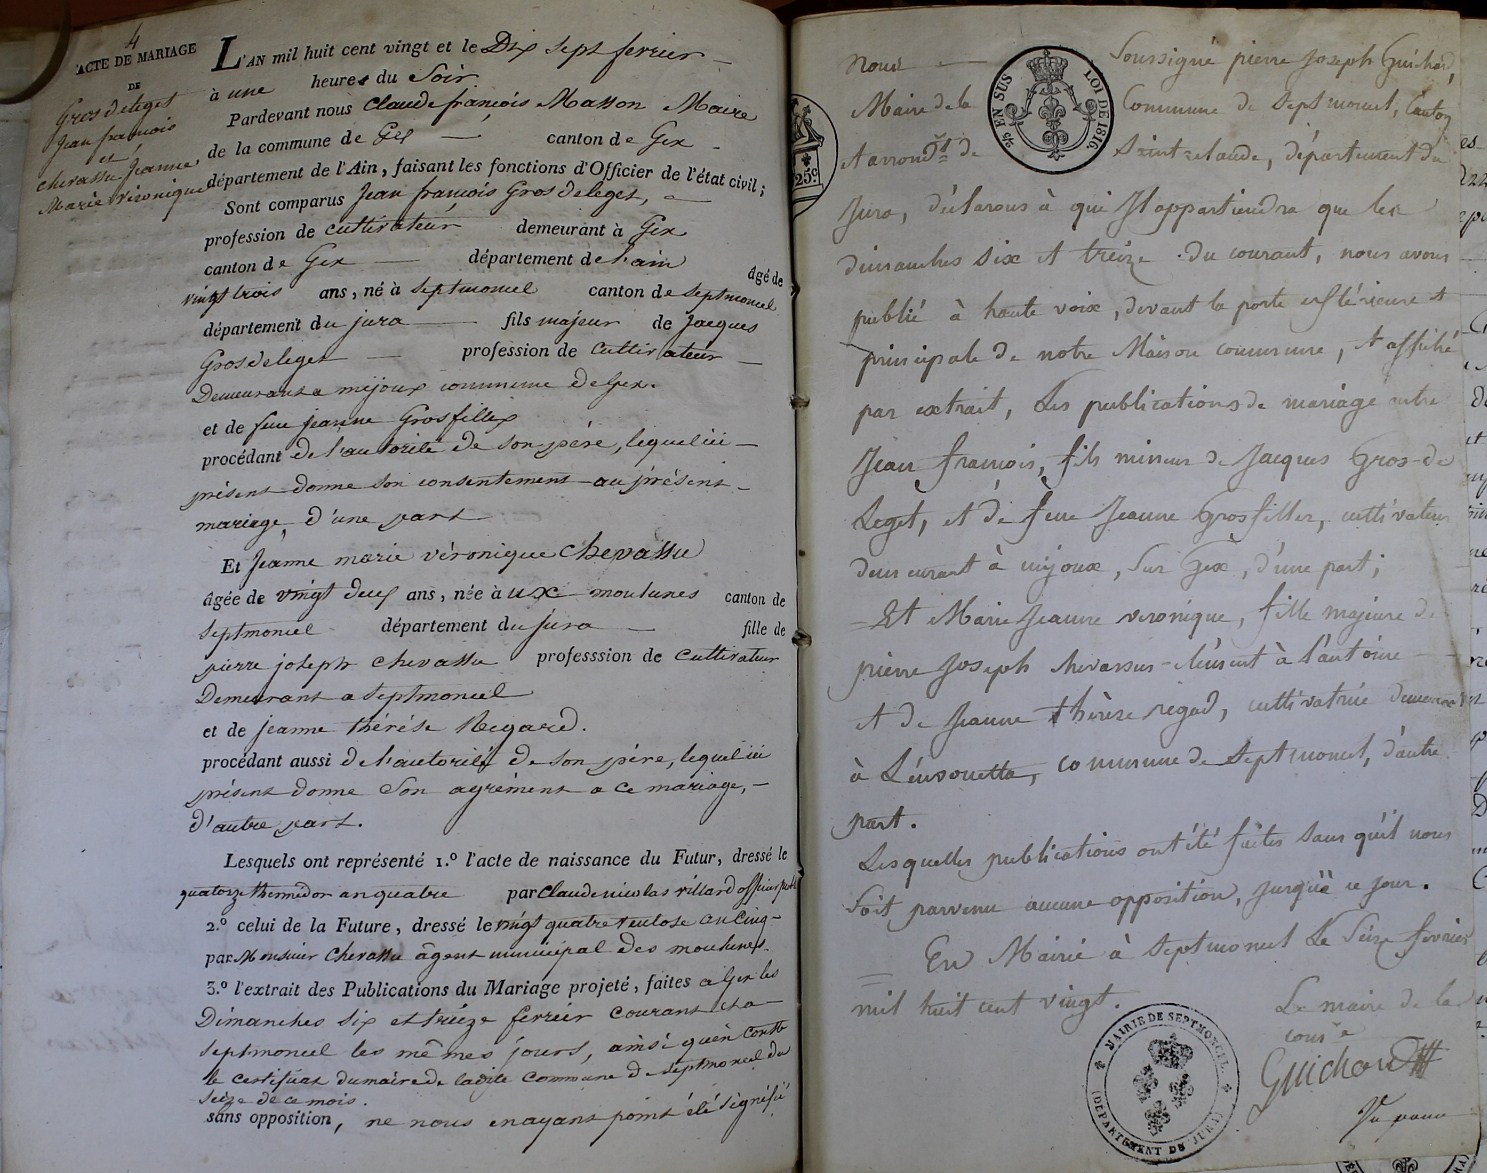 4
ACTE DE MARIAGE
DE
Gros de leget
Jean francois
et
chevassu Jeanne
Marie véronique
L'AN mil huit cent vingt et le Dix sept fevrier
à une heures du Soir
Pardevant nous Claude françois Masson Maire
de la commune de Gex canton de Gex
département de l'Ain, faisant les fonctions d'Officier de l'état civil;
Sont comparus Jean françois Gros de leget,
profession de cultivateur demeurant à Gex
canton de Gex département de l'ain âgé de
vingt trois ans, né à Septmoncel canton de Septmoncel
département du jura fils majeur de jacques
Gros de leget profession de Cultivateur
Demeurant a mijoux commune de Gex.
et de feue jeanne Grosfillex
procédant de l'autorité de son père, lequel ici
présent donne son consentement au présent
mariage, d'une part
Et Jeanne marie véronique Chevassu
âgée de vingt deux ans, née à aux moulunes canton de
Septmoncel département du jura fille de
pierre joseph chevassu professsion de Cultivateur
Demeurant a Septmoncel
et de jeanne thérése Regard.
procédant aussi de l'autorité de son père, lequel ici
présent donne Son agrément a ce mariage,
d'autre part.
Lesquels ont représenté 1.º l'acte de naissance du Futur, dressé le
quatorze thermidor an quatre par Claude nicolas villard officier publ
2.º celui de la Future, dressé le vingt quatre ventose an Cinq
par Monsieur Chevassu âgent municipal des moulunes.
3.º l'extrait des Publications du Mariage projeté, faites a Gex les
Dimanches six et treize fevrier courant et a
Septmoncel les mêmes jours, ainsi qu'en conste
le certificat du maire de ladite commune de Septmoncel du
seize de ce mois.
sans opposition, ne nous en ayant point été signifié
25c.
25c EN SUS LOI DE 1816.
Nous Soussigné pierre Joseph Guichard,
Maire de la Commune de Septmoncel, Canton
et arrondt de Saint-claude, département du
Jura, déclarons à qui Il appartiendra que les
dimanches six et treize du courant, nous avons
publié à haute voix, devant la porte extérieure et
principale de notre Maison commune, et affiché
par extrait, Les publications de mariage entre
Jean François, fils mineur de Jacques Gros-de
Leget, et de feue Jeanne Grosfiller, cultivateur
demeurant à mijoux, Sur Gex, d'une part;
Et Marie Jeanne veronique, fille majeure de
pierre Joseph chevassus-clément à l'antoine
et de Jeanne thérèse regad, cultivatrice demeurant
à L'énvouetta, commune de Septmoncel, d'autre
part.
Lesquelles publications ont été faites sans qu'il nous
soit parvenu aucune opposition, jusqu'à ce jour.
En Mairie à Septmoncel Le Seize fevrier
mil huit cent vingt.
Le maire de lad
come
Guichard
MAIRIE DE SEPTMONCEL.
(DEPARTEMENT DU JURA)
Vu pour